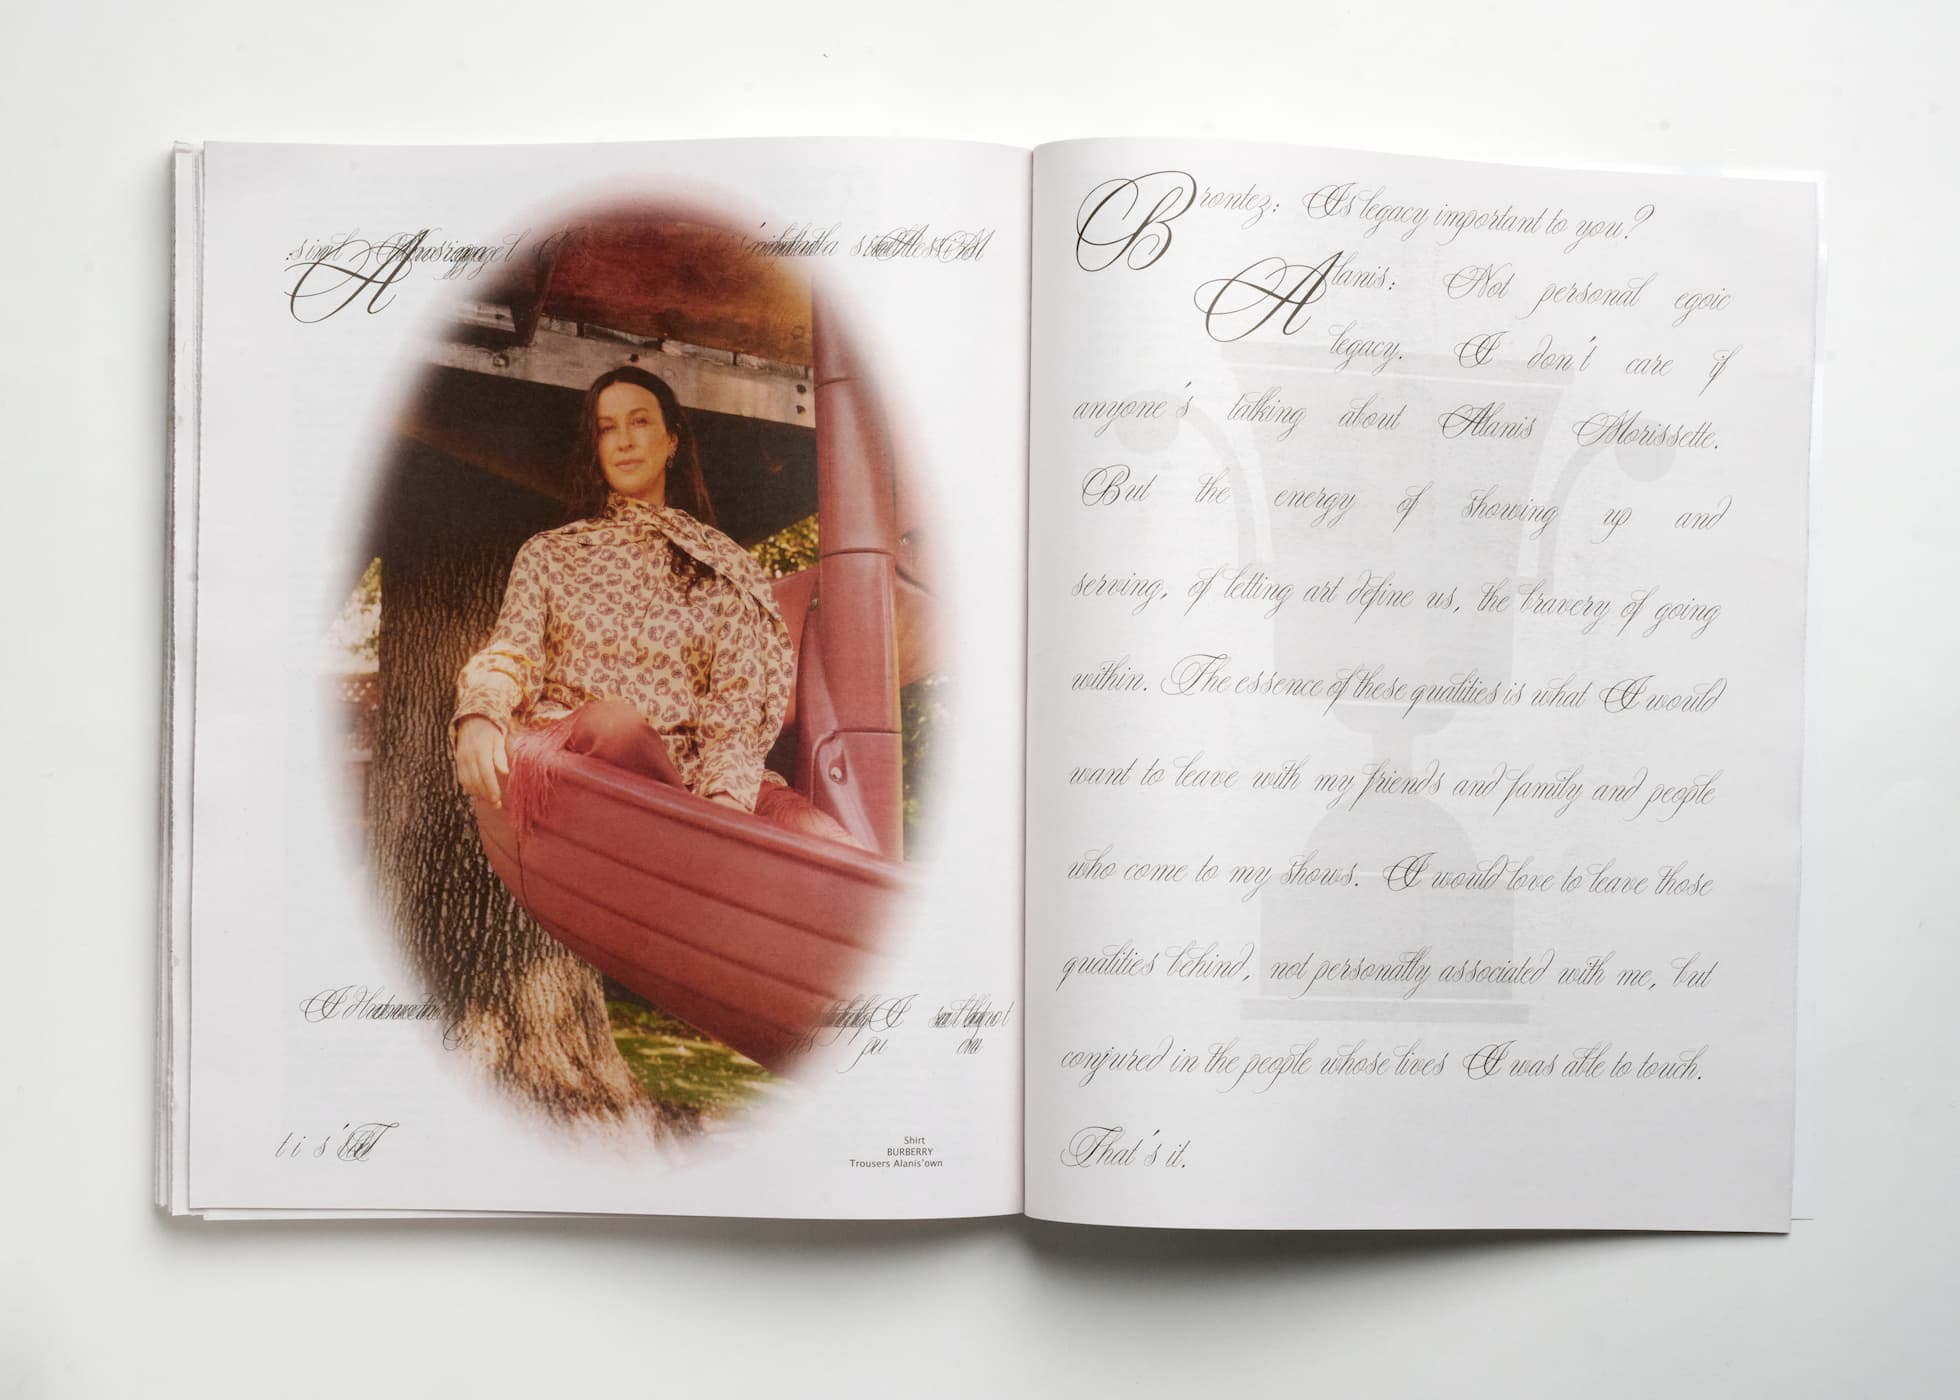 A
Shirt
BURBERRY
Trousers Alanis'own
Brontez: Is legacy important to you?
Alanis: Not personal egoic
legacy. I don't care if
anyone's talking about Alanis Morissette.
But the energy of showing up and
serving, of letting art define us, the bravery of going
within. The essence of these qualities is what I would
want to leave with my friends and family and people
who come to my shows. I would love to leave those
qualities behind, not personally associated with me, but
conjured in the people whose lives I was able to touch.
That's it.